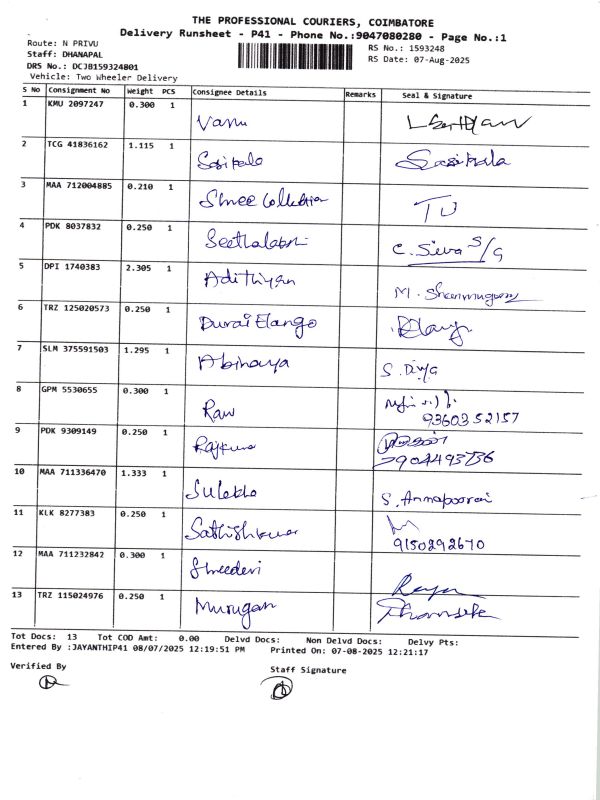 THE PROFESSIONAL COURIERS, COIMBATORE
Delivery Runsheet - P41 - Phone No.:9047080280 - Page No.:1
Route: N PRIVU
Staff: DHANAPAL
DRS No.: DCJB159324801
Vehicle: Two Wheeler Delivery
RS No.: 1593248
RS Date: 07-Aug-2025
S No Consignment No Weight PCS Consignee Details Remarks Seal & Signature
1 KMU 2097247 0.300 1
Vanu
2 TCG 41836162 1.115 1
Sasikala Sasikala
3 MAA 712004885 0.210 1
Shree Collection
4 PDK 8037832 0.250 1
Seethalakshmi C. Siva S/G
5 DPI 1740383 2.305 1
Adithiyan M. Shanmugam
6 TRZ 125020573 0.250 1
Durai Elango
7 SLM 375591503 1.295 1
Abinaya S. Divya
8 GPM 5530655 0.300 1
Ravi 93603 52157
9 PDK 9309149 0.250 1
Rajkumar 7904493736
10 MAA 711336470 1.333 1
Sulekha S. Annapoorani
11 KLK 8277383 0.250 1
Sathishkumar 9150292670
12 MAA 711232842 0.300 1
Shreedevi
13 TRZ 115024976 0.250 1
Murugan
Tot Docs: 13 Tot COD Amt: 0.00 Delvd Docs: Non Delvd Docs: Delvy Pts:
Entered By :JAYANTHIP41 08/07/2025 12:19:51 PM Printed On: 07-08-2025 12:21:17
Verified By Staff Signature